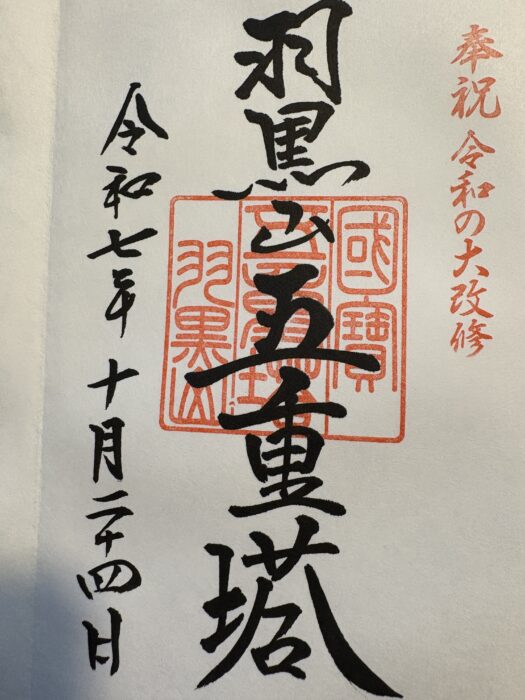 奉祝 令和の大改修
羽黒山五重塔
國寶
五重塔
羽黒山
令和七年 十月二十四日